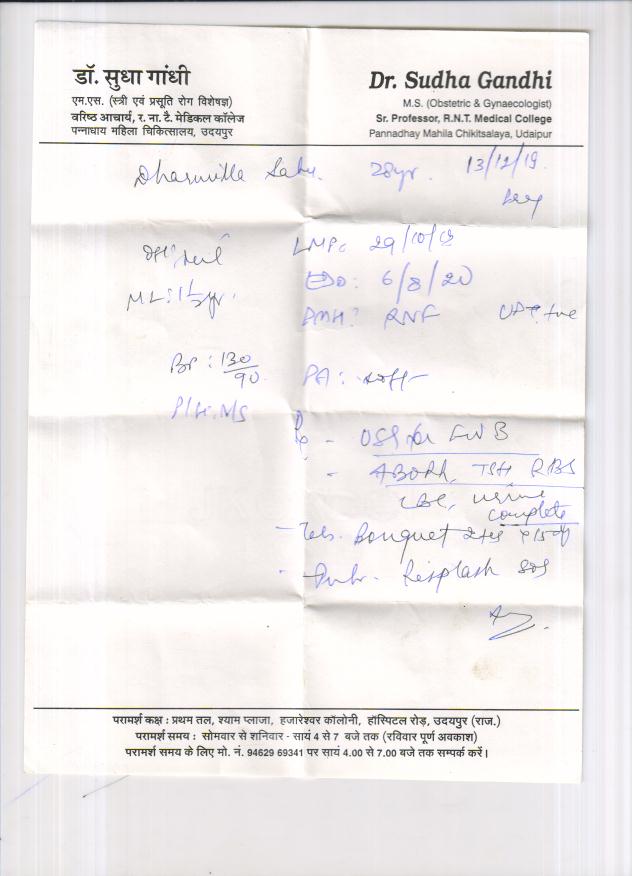 डॉ. सुधा गांधी
एम.एस. (स्त्री एवं प्रसूति रोग विशेषज्ञ)
वरिष्ठ आचार्य, र. ना. टै. मेडिकल कॉलेज
पन्नाधाय महिला चिकित्सालय, उदयपुर
Dr. Sudha Gandhi
M.S. (Obstetric & Gynaecologist)
Sr. Professor, R.N.T. Medical College
Pannadhay Mahila Chikitsalaya, Udaipur
28yr. 13/12/19.
LMP: 29/10/19
ML: 1½yr.
EDD: 6/8/20
UPT +ve
BP: 130/90
PA: soft
USG for FWB
ABORh, TSH RBS
CBC, urine
complete
Bouquet
sos
परामर्श कक्ष : प्रथम तल, श्याम प्लाजा, हजारेश्वर कॉलोनी, हॉस्पिटल रोड़, उदयपुर (राज.)
परामर्श समय : सोमवार से शनिवार - सायं 4 से 7 बजे तक (रविवार पूर्ण अवकाश)
परामर्श समय के लिए मो. नं. 94629 69341 पर सायं 4.00 से 7.00 बजे तक सम्पर्क करें।